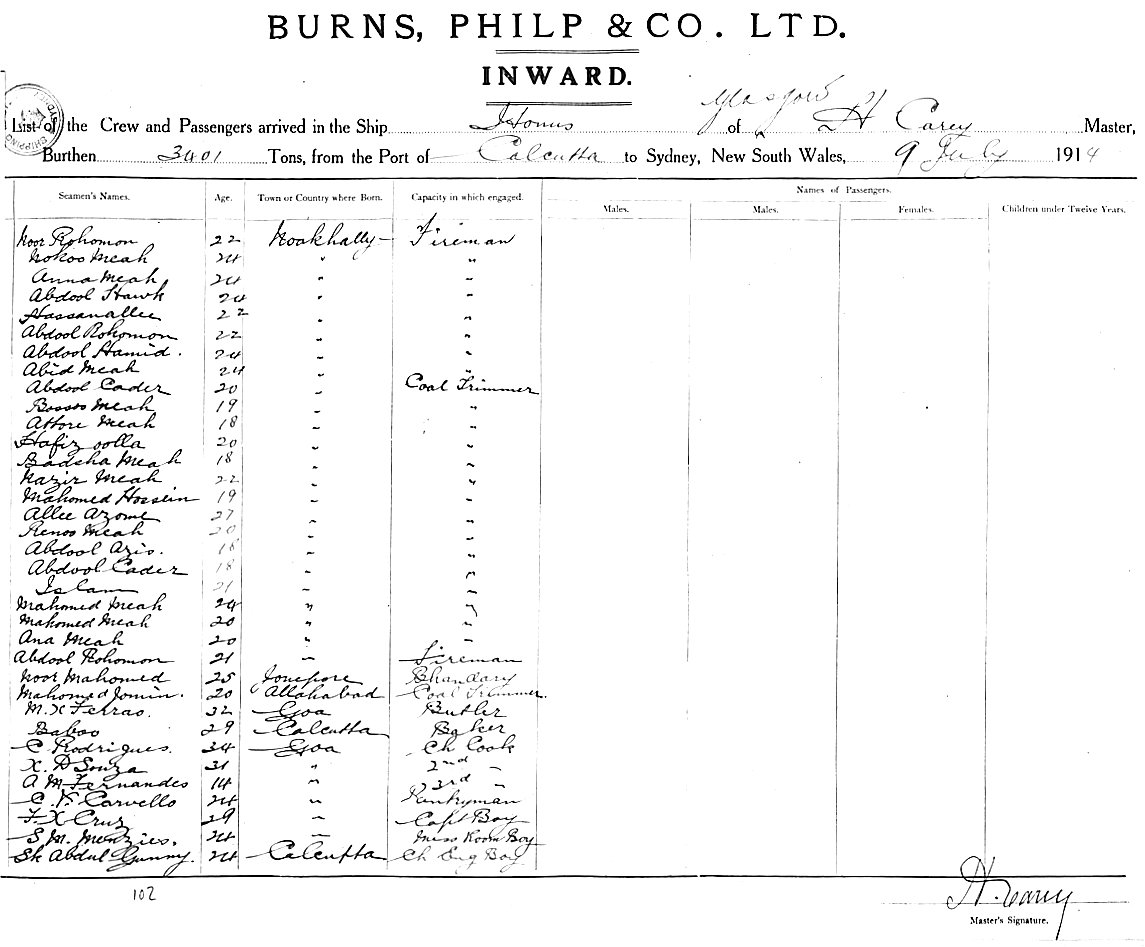 BURNS, PHILP & CO. LTD.
INWARD.
List of the Crew and Passengers arrived in the Ship Itonus of Glasgow H Carey Master,
Burthen 3401 Tons, from the Port of Calcutta to Sydney, New South Wales, 9 July 1914
Seamen's Names. Age. Town or Country where Born. Capacity in which engaged. Names of Passengers.
Males. Males. Females. Children under Twelve Years.
Noor Rohomon 22 Noakhally Fireman
Nokoo Meah 24 " "
Anna Meah 24 " "
Abdool Hawk 24 " "
Hassanallee 22 " "
Abdool Rohomon 22 " "
Abdool Hamid. 24 " "
Abid Meah 24 " "
Abdool Cader 20 " Coal Trimmer
Bossos Meah 19 " "
Attore Meah 18 " "
Hafiz oolla 20 " "
Badsha Meah 18 " "
Nazir Meah 22 " "
Mahomed Hossein 19 " "
Allee Azome 27 " "
Renoo Meah 20 " "
Abdool Azis. 18 " "
Abdool Cader 18 " "
Islam 21 " "
Mahomed Meah 24 " "
Mahomed Meah 20 " "
Ana Meah 20 " "
Abdool Rohomon 21 " Fireman
Noor Mahomed 25 Jonepore Bhandary
Mahomed Jomin. 20 Allahabad Coal Trimmer.
M. X Ferrao. 32 Goa Butler
Baboo 29 Calcutta Baker
C Rodrigues. 34 Goa Ch Cook
X. D Souza 31 " 2nd "
A M Fernandes 14 " 3rd "
C. F. Carvello 24 " Pantryman
F X Cruz 29 " Capt Boy
S M. Menzies. 24 " Mess Room Boy
Sk Abdul Gunny. 24 Calcutta Ch Eng Boy
102
H. Carey
Master's Signature.